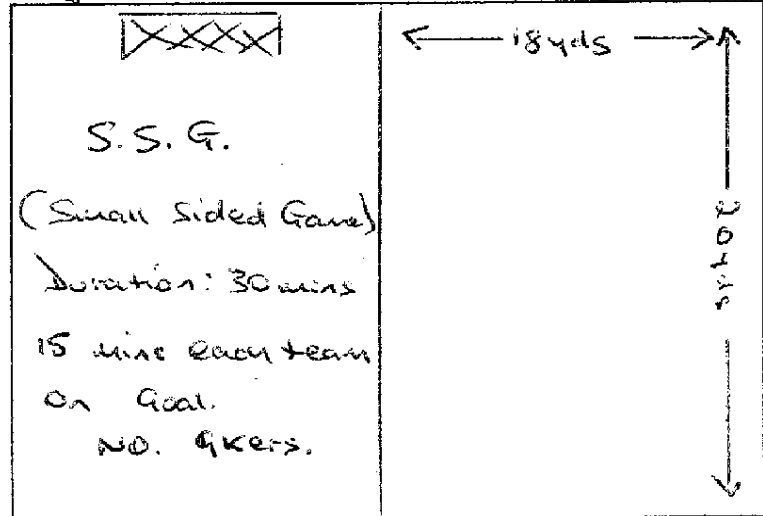 S.S.G.
(Small Sided Game)
Duration: 30 mins
15 mins each team
on Goal.
NO. GKers.
18yds
20yds